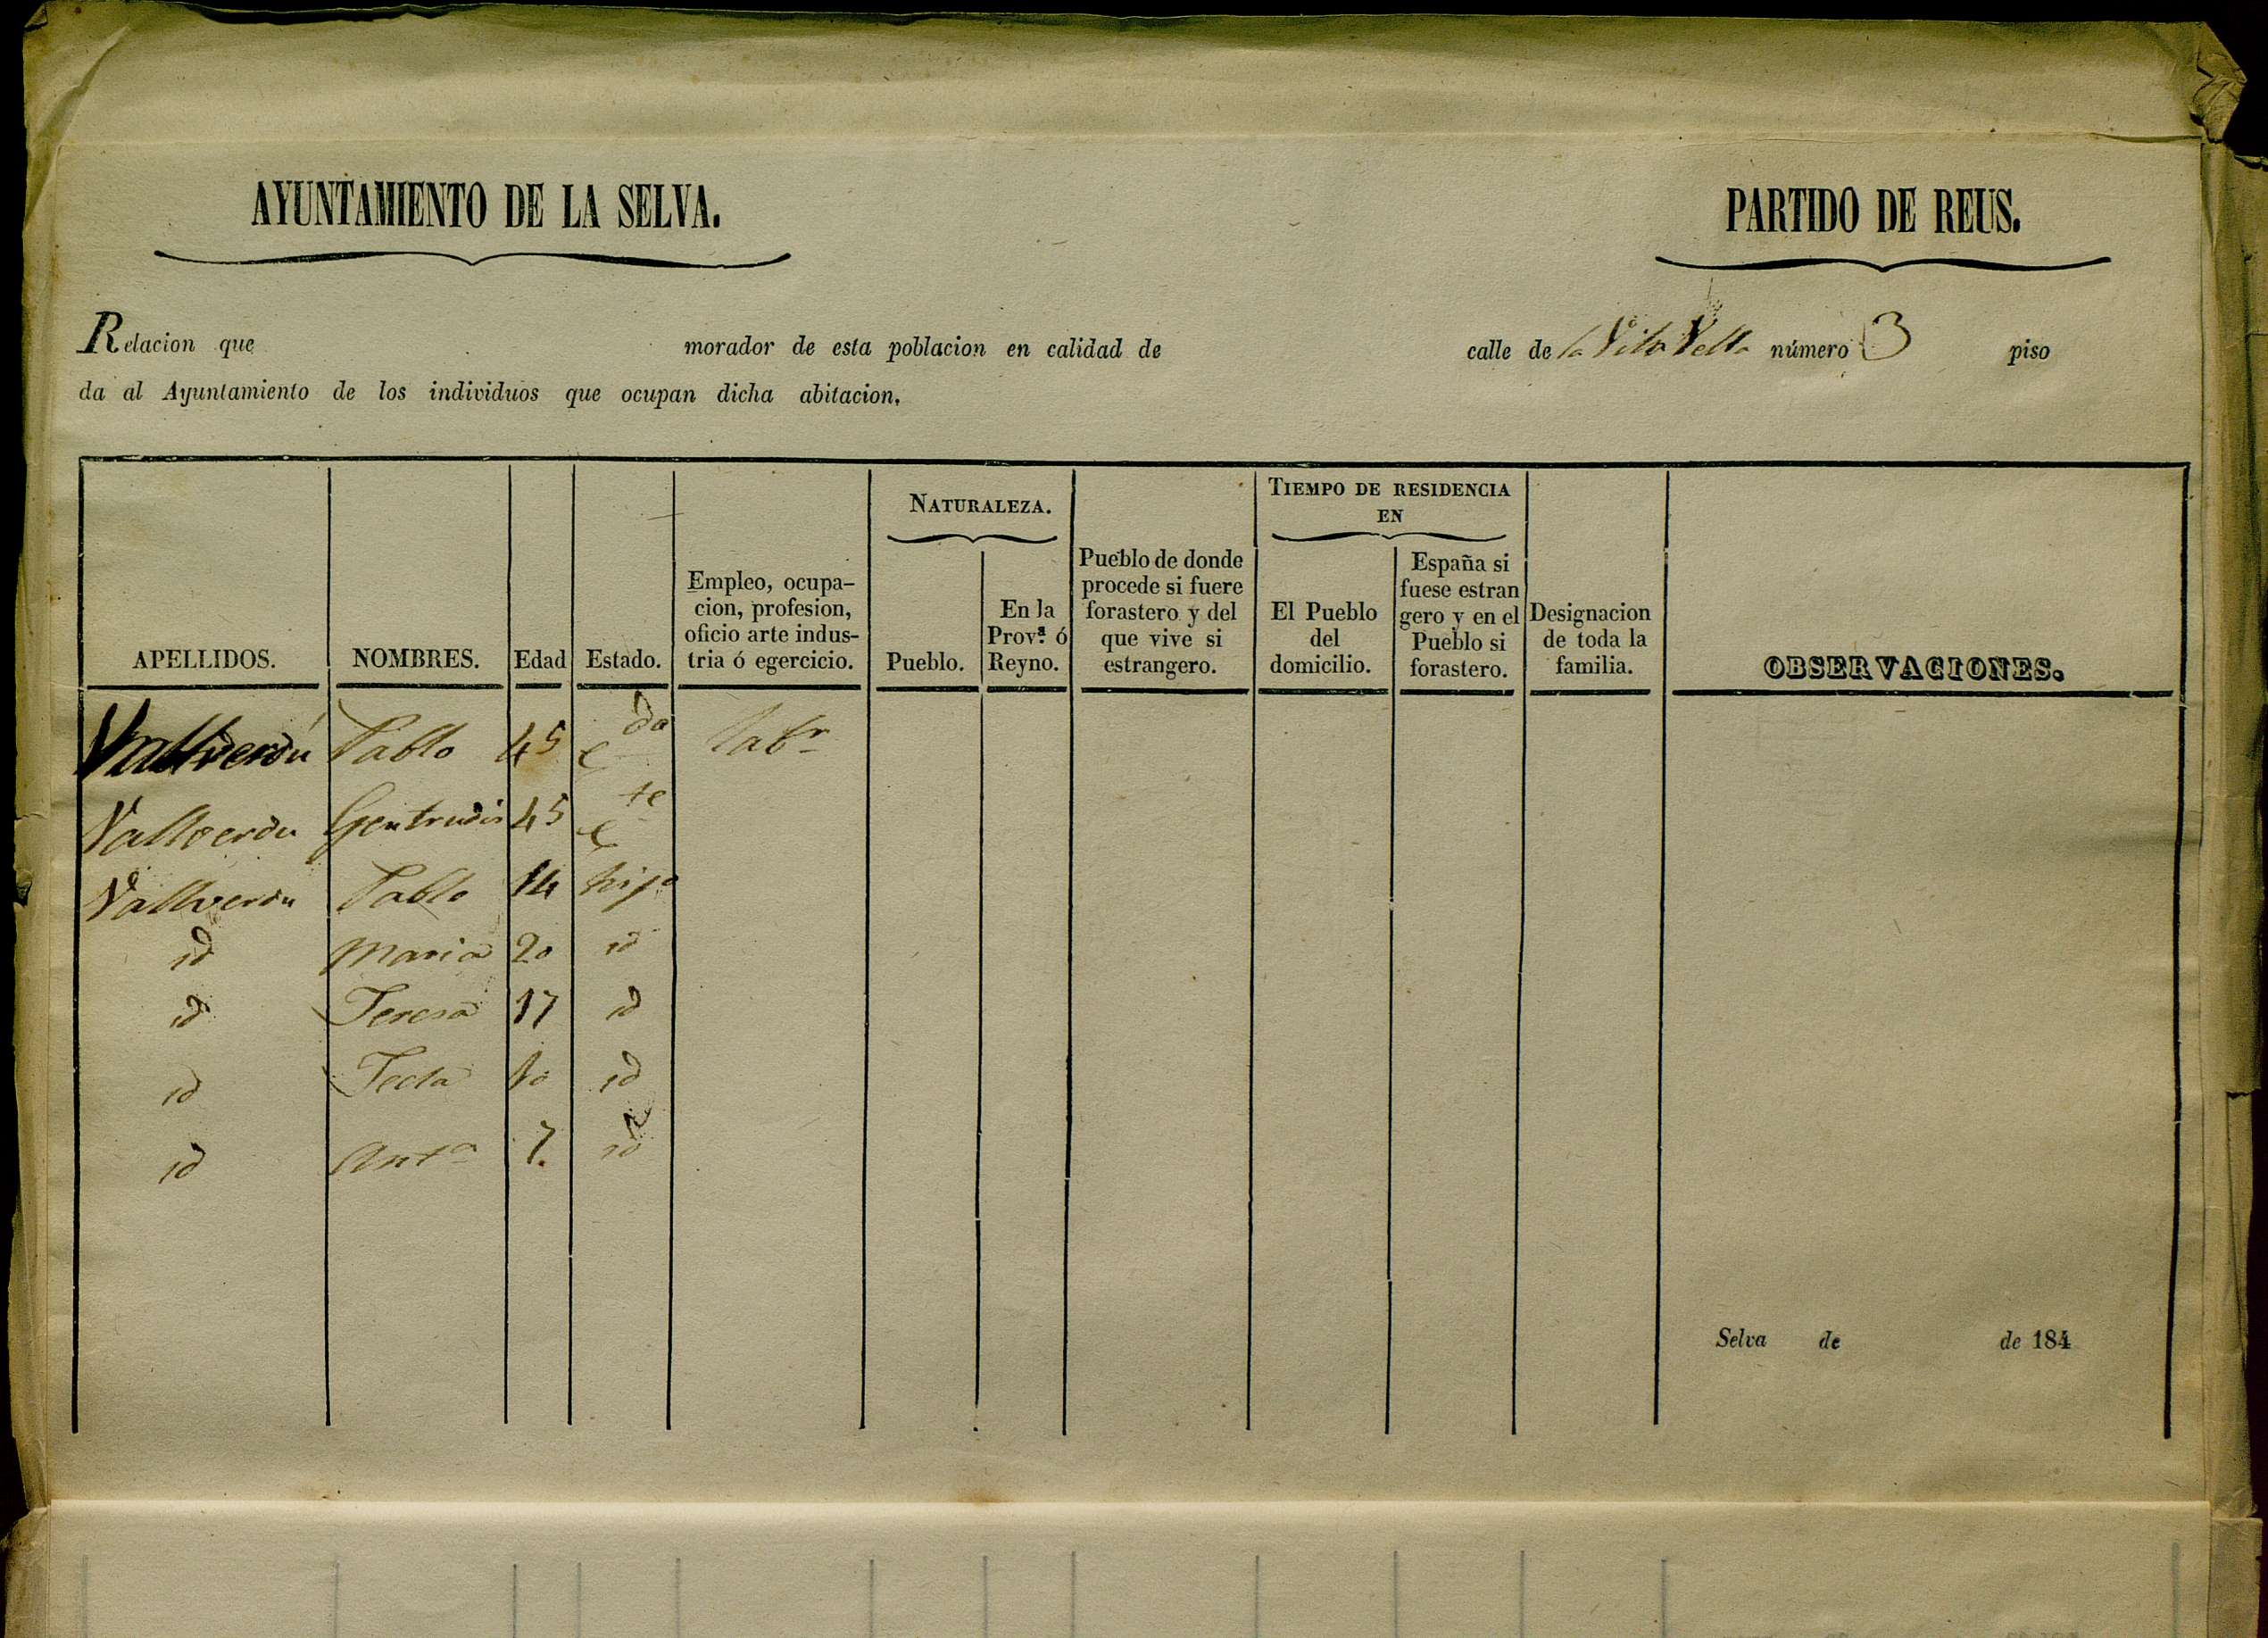 AYUNTAMIENTO DE LA SELVA. PARTIDO DE REUS.
Relacion que morador de esta poblacion en calidad de calle de la Vila Vella número 3 piso
da al Ayuntamiento de los individuos que ocupan dicha abitacion.
APELLIDOS. NOMBRES. Edad Estado. Empleo, ocupa-
cion, profesion,
oficio arte indus-
tria ó egercicio.
NATURALEZA.
Pueblo. En la
Prov.ª ó
Reyno.
Pueblo de donde
procede si fuere
forastero y del
que vive si
estrangero.
TIEMPO DE RESIDENCIA
EN
El Pueblo
del
domicilio.
España si
fuese estran
gero y en el
Pueblo si
forastero.
Designacion
de toda la
familia.
OBSERVACIONES.
Vallverdú Pablo 45 c do labr
Vallverdu Gertrudis 45 c te
Vallverdu Pablo 14 hijo
id Maria 20 id
id Teresa 17 id
id Tecla 10 id
id Anta 7. id
Selva de de 184